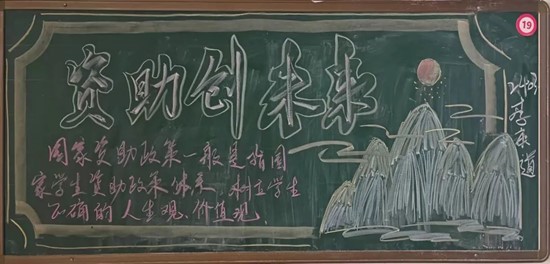 资助创未来
国家资助政策一般是指国
家学生资助政策体系，树立学生
正确的人生观、价值观.
19